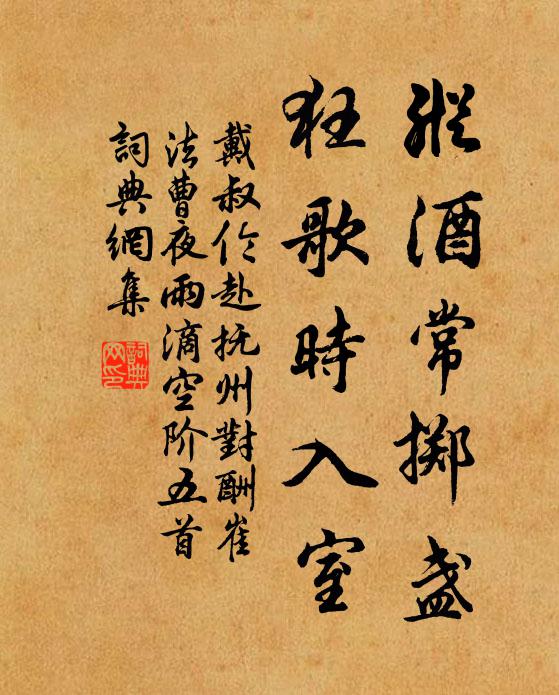 縱酒常擲盞
狂歌時入室
戴叔伦赴抚州對酬崔
法曹夜雨滴空阶五首
詞典網集
詞典網印